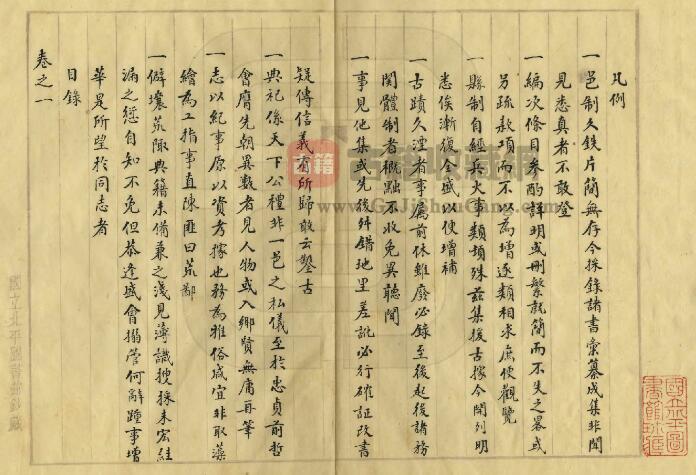 凡例
一邑制久铁片簡無存今採錄諸書彙纂成集非聞
見悉真者不敢登
一編次條目參酌詳明或刪繁就簡而不失之畧或
另疏款項而不以為增逐類相求庶便觀覽
一縣制自經兵火事類頗殊茲集援古據今開列明
悉俟漸復全盛以便增補
一古蹟久湮者事属前休雖廢必錄至後起後諸務
関體制者概黜不收免異聽聞
一事見他集或先後舛錯地里差訛必行確証改書
疑傳信義有所歸敢云鑿古
一典祀係天下公禮非一邑之私儀至於忠貞前哲
會膺先朝異數者見人物或入鄉賢無庸再筆
一志以紀事原以資考據也務為雅俗咸宜非取藻
繪為工指事直陳匪曰荒鄙
一僻壤荒陬典籍未備兼之淺見薄識搜採未宏絓
漏之愆自知不免但恭逢盛會搦管何辭踵事增
華是所望於同志者
目錄
卷之一
古籍
www.GuJiShouCang.com